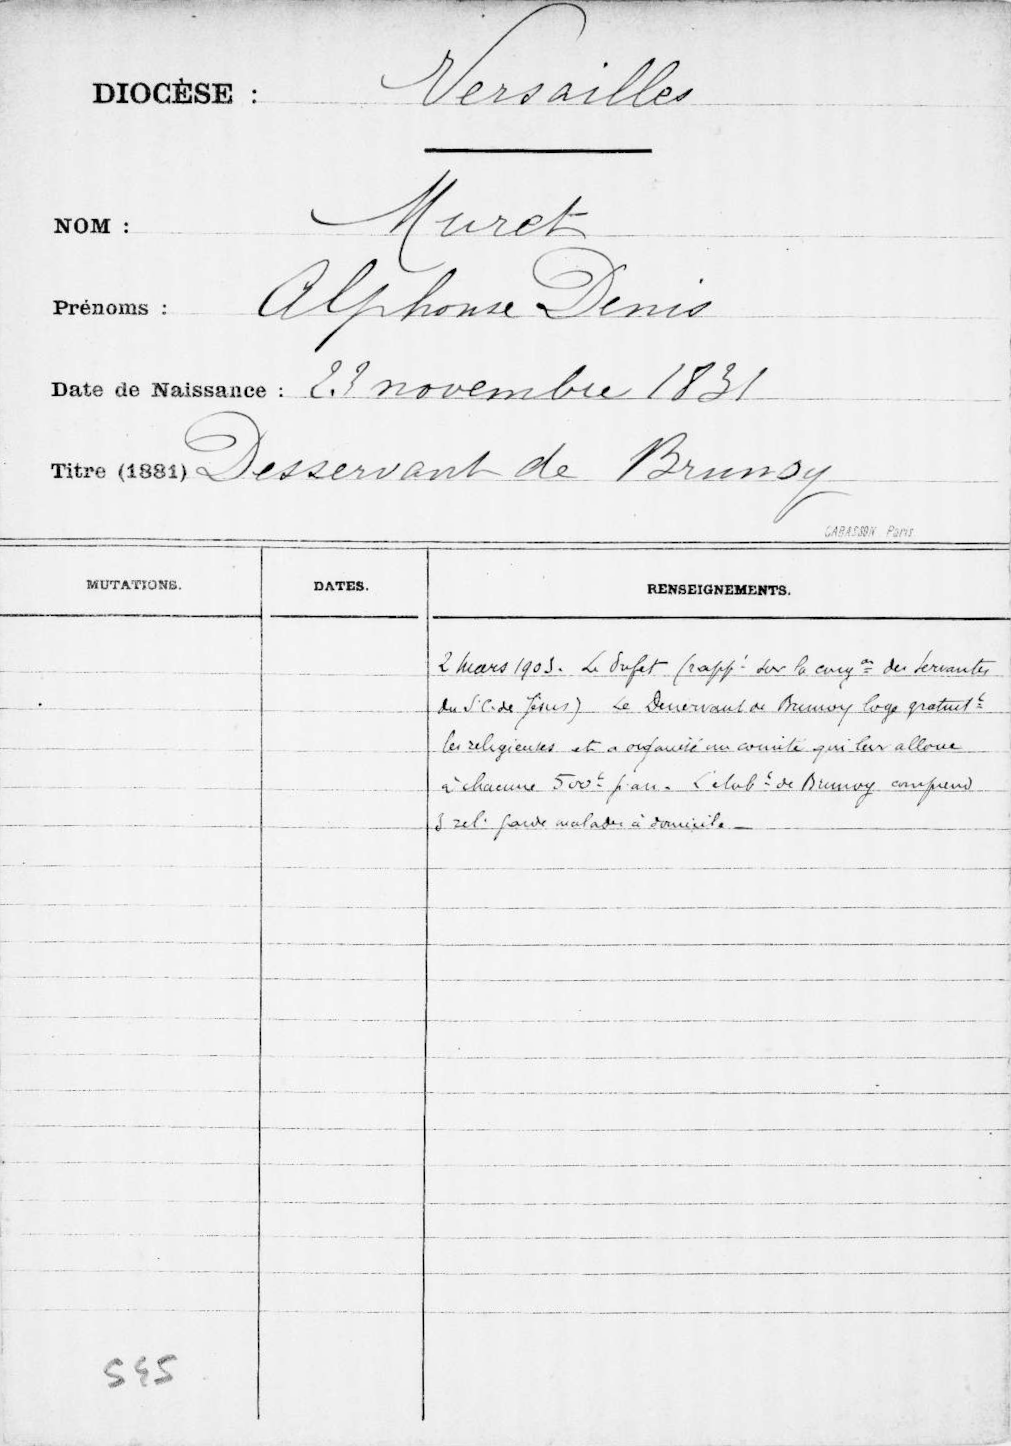 DIOCÈSE : Versailles
NOM : Muret
Prénoms : Alphonse Denis
Date de Naissance : 23 novembre 1831
Titre (1881) Desservant de Brunoy
CABASSON Paris
MUTATIONS. DATES. RENSEIGNEMENTS.
2 mars 1903. Le Préfet (rappt sur la congon des Servantes
du S.C. de Jésus) Le Desservant de Brunoy loge gratuitt
les religieuses et a organisé un comité qui leur alloue
à chacune 500f p. an. L'étabt de Brunoy comprend
3 rel. garde malades à domicile —
545